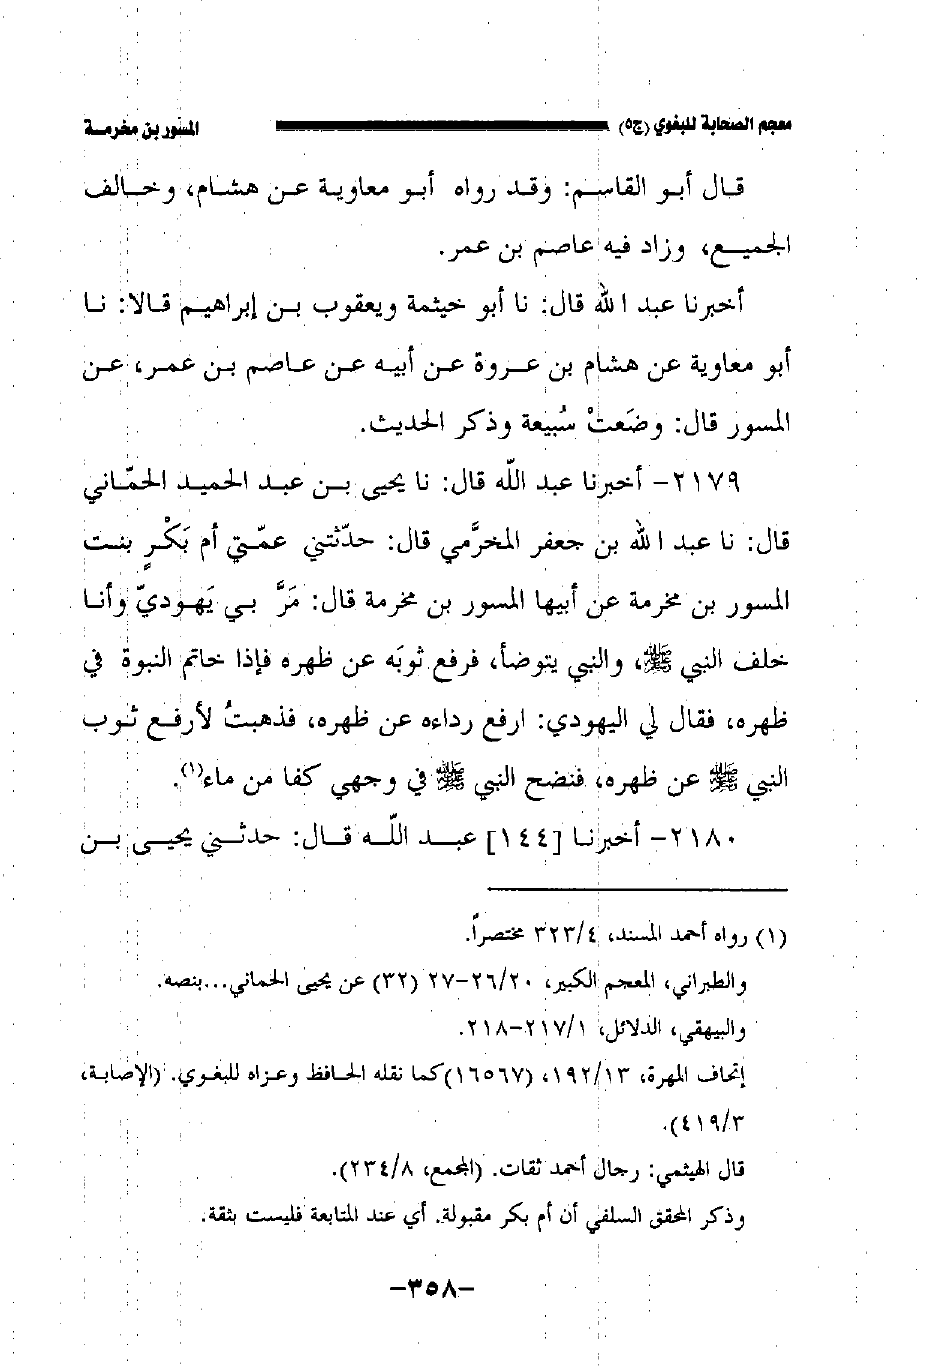 معجم الصحابة للبغوي (ج٥) المسور بن مخرمة
قال أبو القاسم: وقد رواه أبو معاوية عن هشام، وخالف
الجميع، وزاد فيه عاصم بن عمر.
أخبرنا عبد الله قال: نا أبو خيثمة ويعقوب بن إبراهيم قالا: نا
أبو معاوية عن هشام بن عروة عن أبيه عن عاصم بن عمر، عن
المسور قال: وضَعتْ سُبيعة وذكر الحديث.
٢١٧٩- أخبرنا عبد اللّه قال: نا يحيى بن عبد الحميد الحمّاني
قال: نا عبد الله بن جعفر المخرَّمي قال: حدّثتني عمّتي أم بَكْرٍ بنت
المسور بن مخرمة عن أبيها المسور بن مخرمة قال: مَرَّ بي يَهوديّ وأنا
خلف النبي ﷺ، والنبي يتوضأ، فرفع ثوبَه عن ظهره فإذا خاتم النبوة في
ظهره، فقال لي اليهودي: ارفع رداءه عن ظهره، فذهبتُ لأرفع ثوب
النبي ﷺ عن ظهره، فنضح النبي ﷺ في وجهي كفا من ماء(١).
٢١٨٠- أخبرنا [١٤٤] عبد اللّه قال: حدثني يحيى بن
(١) رواه أحمد المسند، ٣٢٣/٤ مختصراً.
والطبراني، المعجم الكبير، ٢٦/٢٠-٢٧ (٣٢) عن يحيى الحماني...بنصه.
والبيهقي، الدلائل، ٢١٧/١-٢١٨.
إتحاف المهرة، ١٩٢/١٣، (١٦٥٦٧)كما نقله الحافظ وعزاه للبغوي. (الإصابة،
٤١٩/٣).
قال الهيثمي: رجال أحمد ثقات. (المجمع، ٢٣٤/٨).
وذكر المحقق السلفي أن أم بكر مقبولة. أي عند المتابعة فليست بثقة.
-٣٥٨-